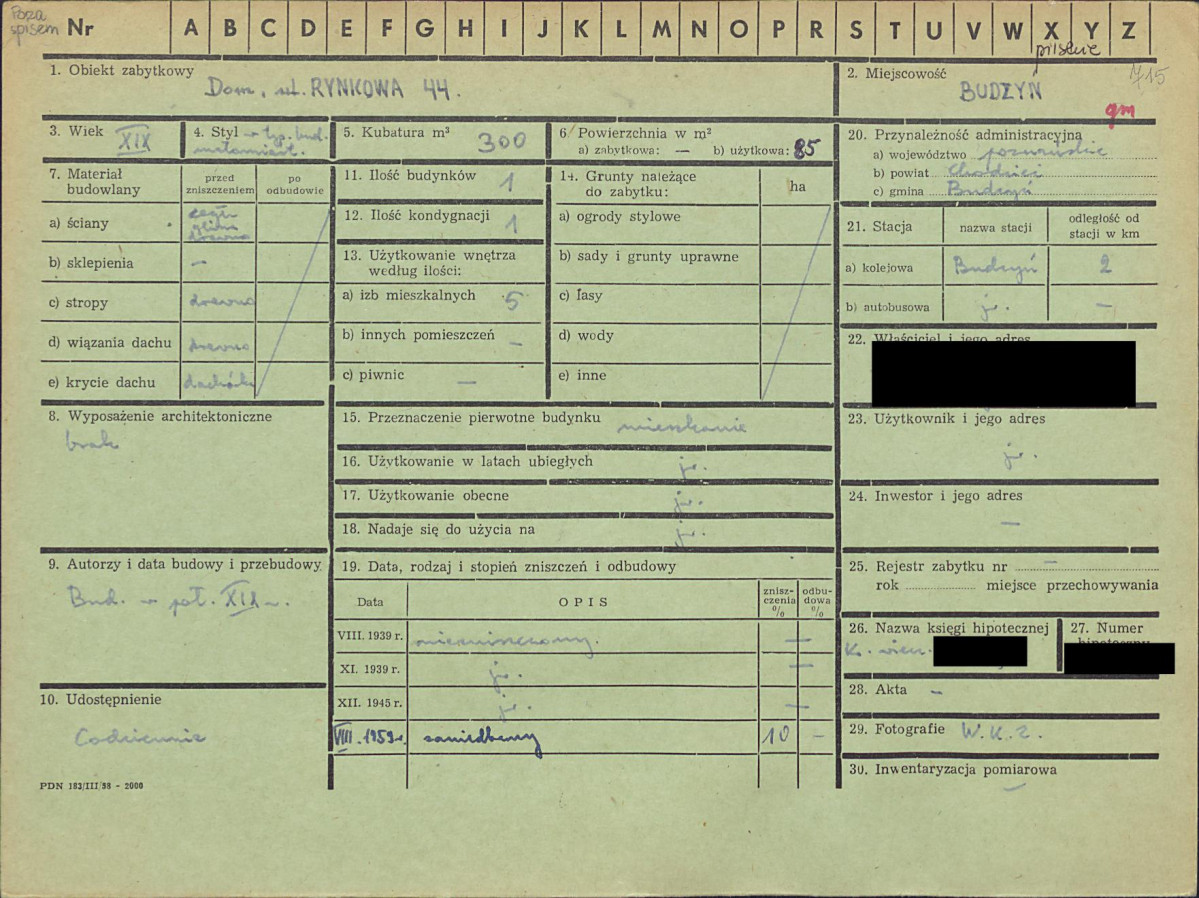 Poza
spisem Nr A B C D E F G H I J K L M N O P R S T U V W X Y Z
pilskie
715
1. Obiekt zabytkowy
Dom, ul. RYNKOWA 44.
2. Miejscowość
BUDZYŃ
gm
3. Wiek
XIX
4. Styl w typ. bud.
małomiast.
5. Kubatura m³
300
6. Powierzchnia w m²
a) zabytkowa: — b) użytkowa: 85
7. Materiał
budowlany
przed
zniszczeniem
po
odbudowie
a) ściany
cegła
glina
drewno
b) sklepienia —
c) stropy drewno
d) wiązania dachu drewno
e) krycie dachu dachówka
8. Wyposażenie architektoniczne
brak
9. Autorzy i data budowy i przebudowy
Bud. w poł. XIX w.
10. Udostępnienie
Codziennie
PDN 183/III/58 - 2000
11. Ilość budynków 1
12. Ilość kondygnacji 1
13. Użytkowanie wnętrza
według ilości:
a) izb mieszkalnych 5
b) innych pomieszczeń —
c) piwnic —
14. Grunty należące
do zabytku:
ha
a) ogrody stylowe
b) sady i grunty uprawne
c) lasy
d) wody
e) inne
15. Przeznaczenie pierwotne budynku mieszkanie
16. Użytkowanie w latach ubiegłych jw.
17. Użytkowanie obecne jw.
18. Nadaje się do użycia na jw.
19. Data, rodzaj i stopień zniszczeń i odbudowy
Data
OPIS
znisz-
czenia
%
odbu-
dowa
%
VIII. 1939 r. niezniszczony. —
XI. 1939 r. jw. —
XII. 1945 r. jw. —
VIII. 1959 r. zaniedbany 10 —
20. Przynależność administracyjna
a) województwo poznańskie
b) powiat Chodzież
c) gmina Budzyń
21. Stacja
nazwa stacji
odległość od
stacji w km
a) kolejowa Budzyń 2
b) autobusowa jw. —
22. Właściciel i jego adres
23. Użytkownik i jego adres
jw.
24. Inwestor i jego adres
—
25. Rejestr zabytku nr —
rok miejsce przechowywania
26. Nazwa księgi hipotecznej
K. wiecz.
27. Numer
hipoteczny
28. Akta —
29. Fotografie W.K.Z.
30. Inwentaryzacja pomiarowa
—